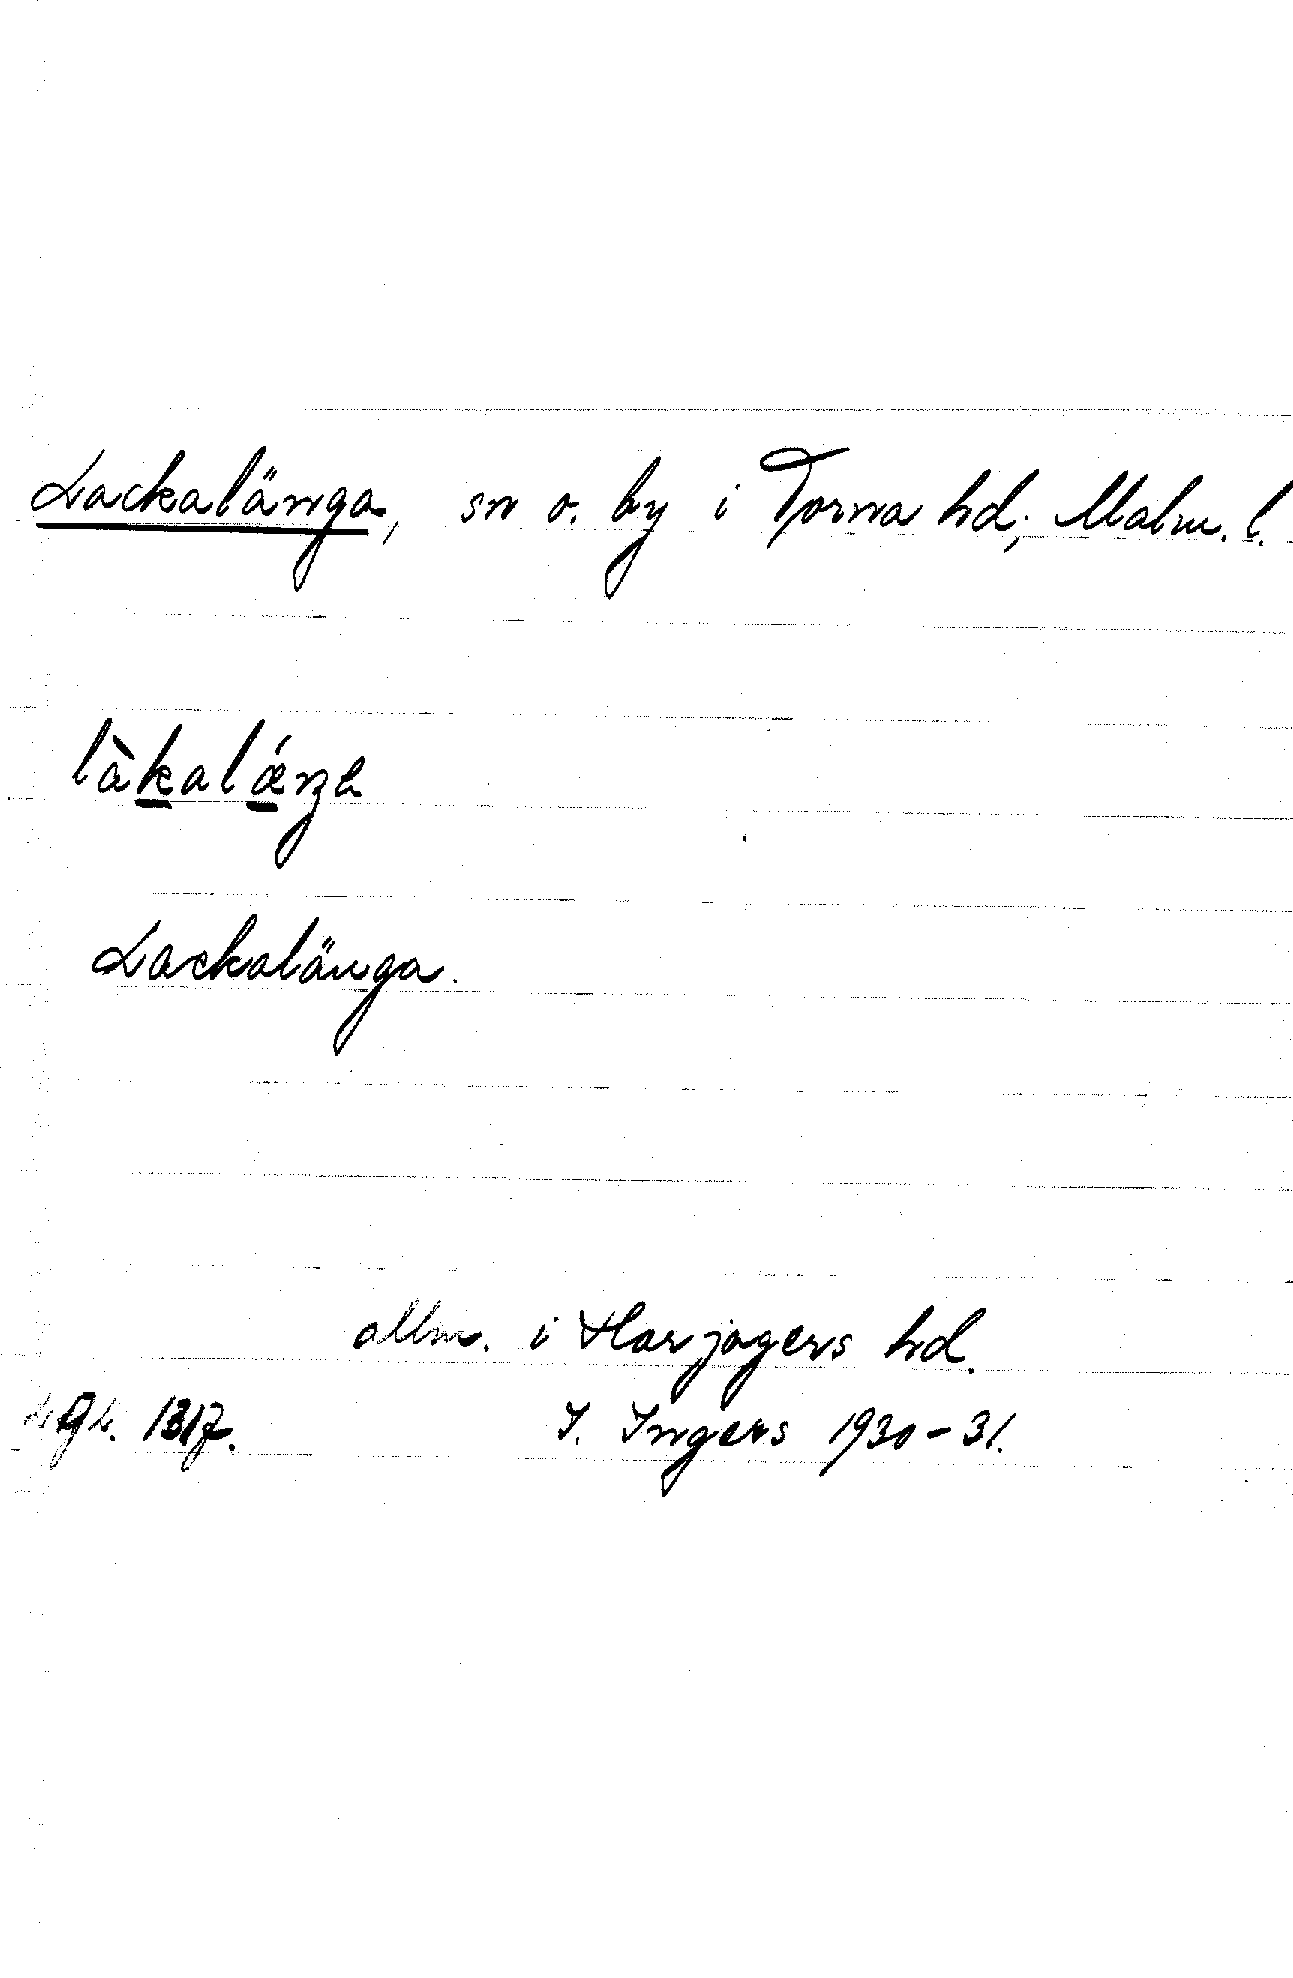 Lackalänga, sn o. by i Torna hd, Malm. l.
làkalǽŋa
Lackalänga.
allm. i Harjagers hd.
1317. I. Ingers 1930-31.